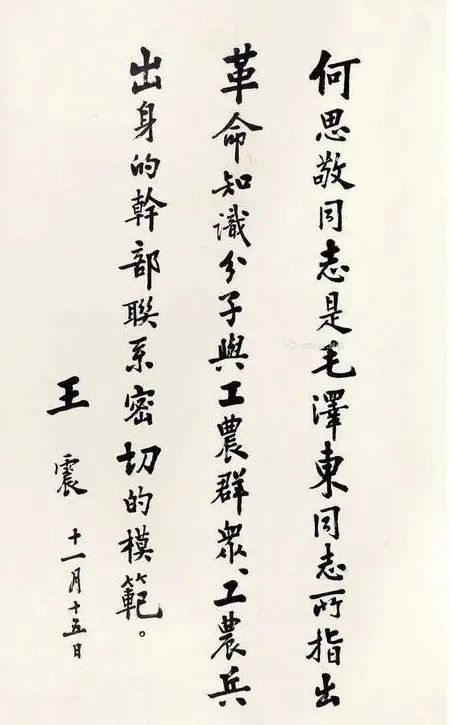 何思敬同志是毛澤東同志所指出
革命知識分子與工農群眾、工農兵
出身的幹部聯系密切的模範。
王震 十一月十五日